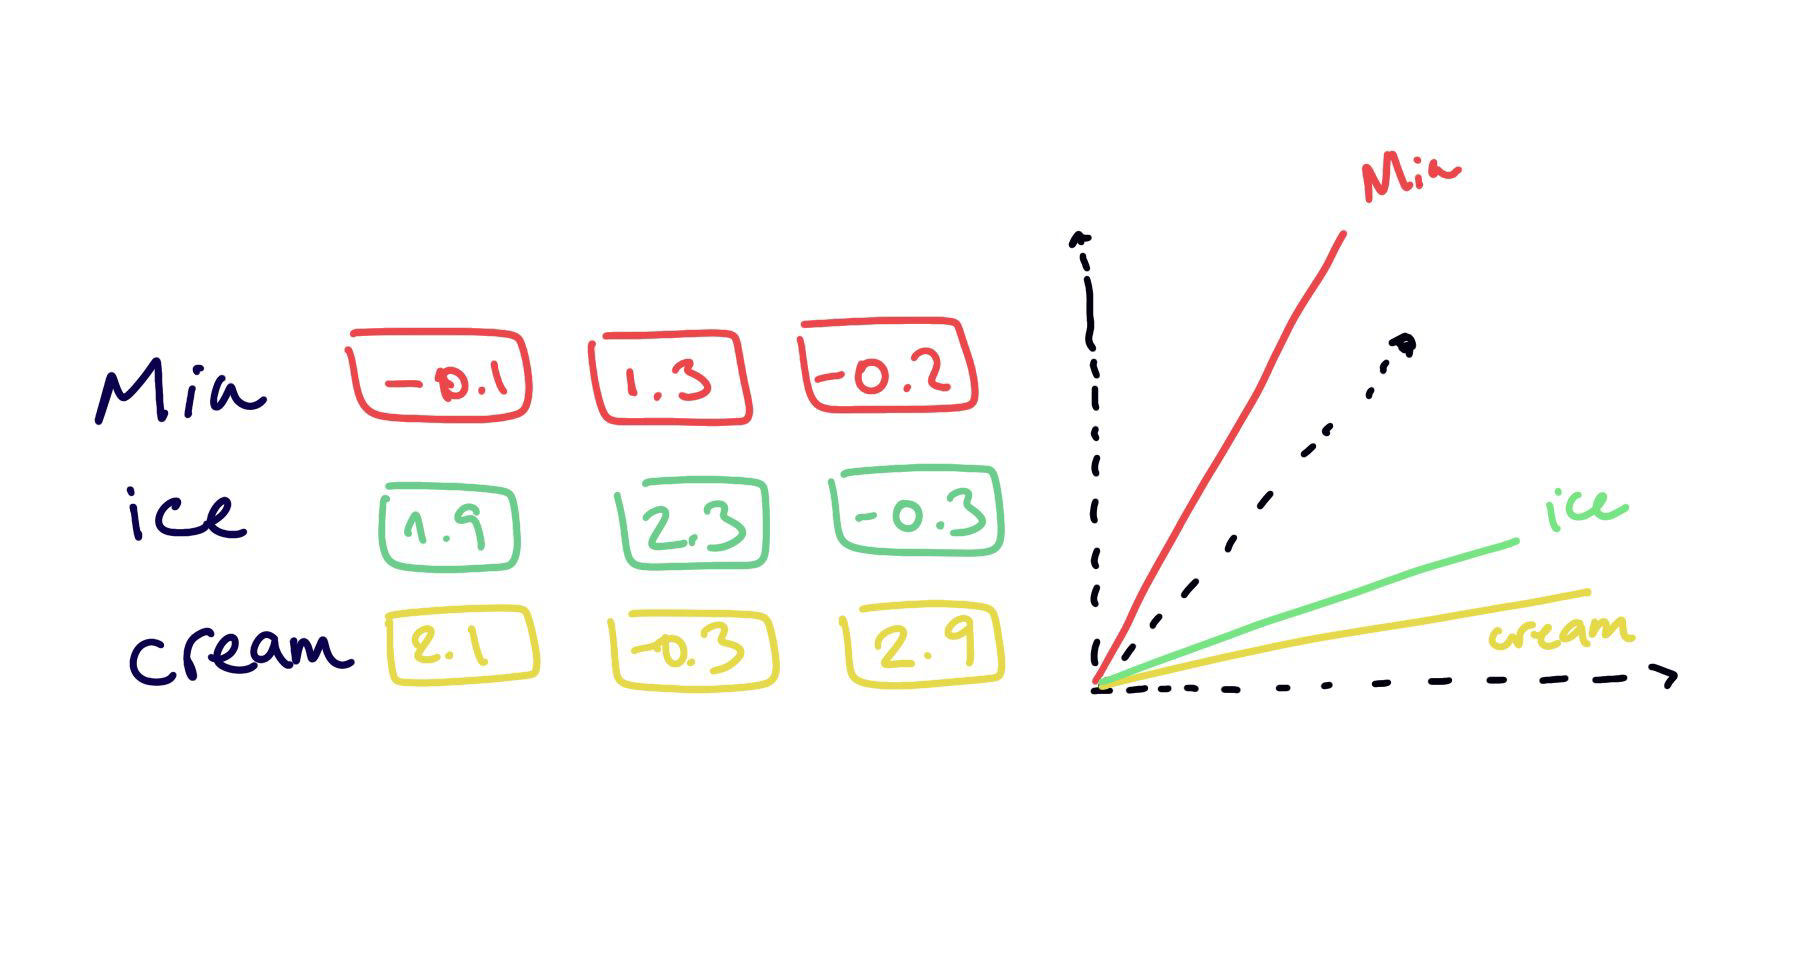 Mia -0.1 1.3 -0.2
ice 1.9 2.3 -0.3
cream 2.1 -0.3 2.9
Mia
ice
cream